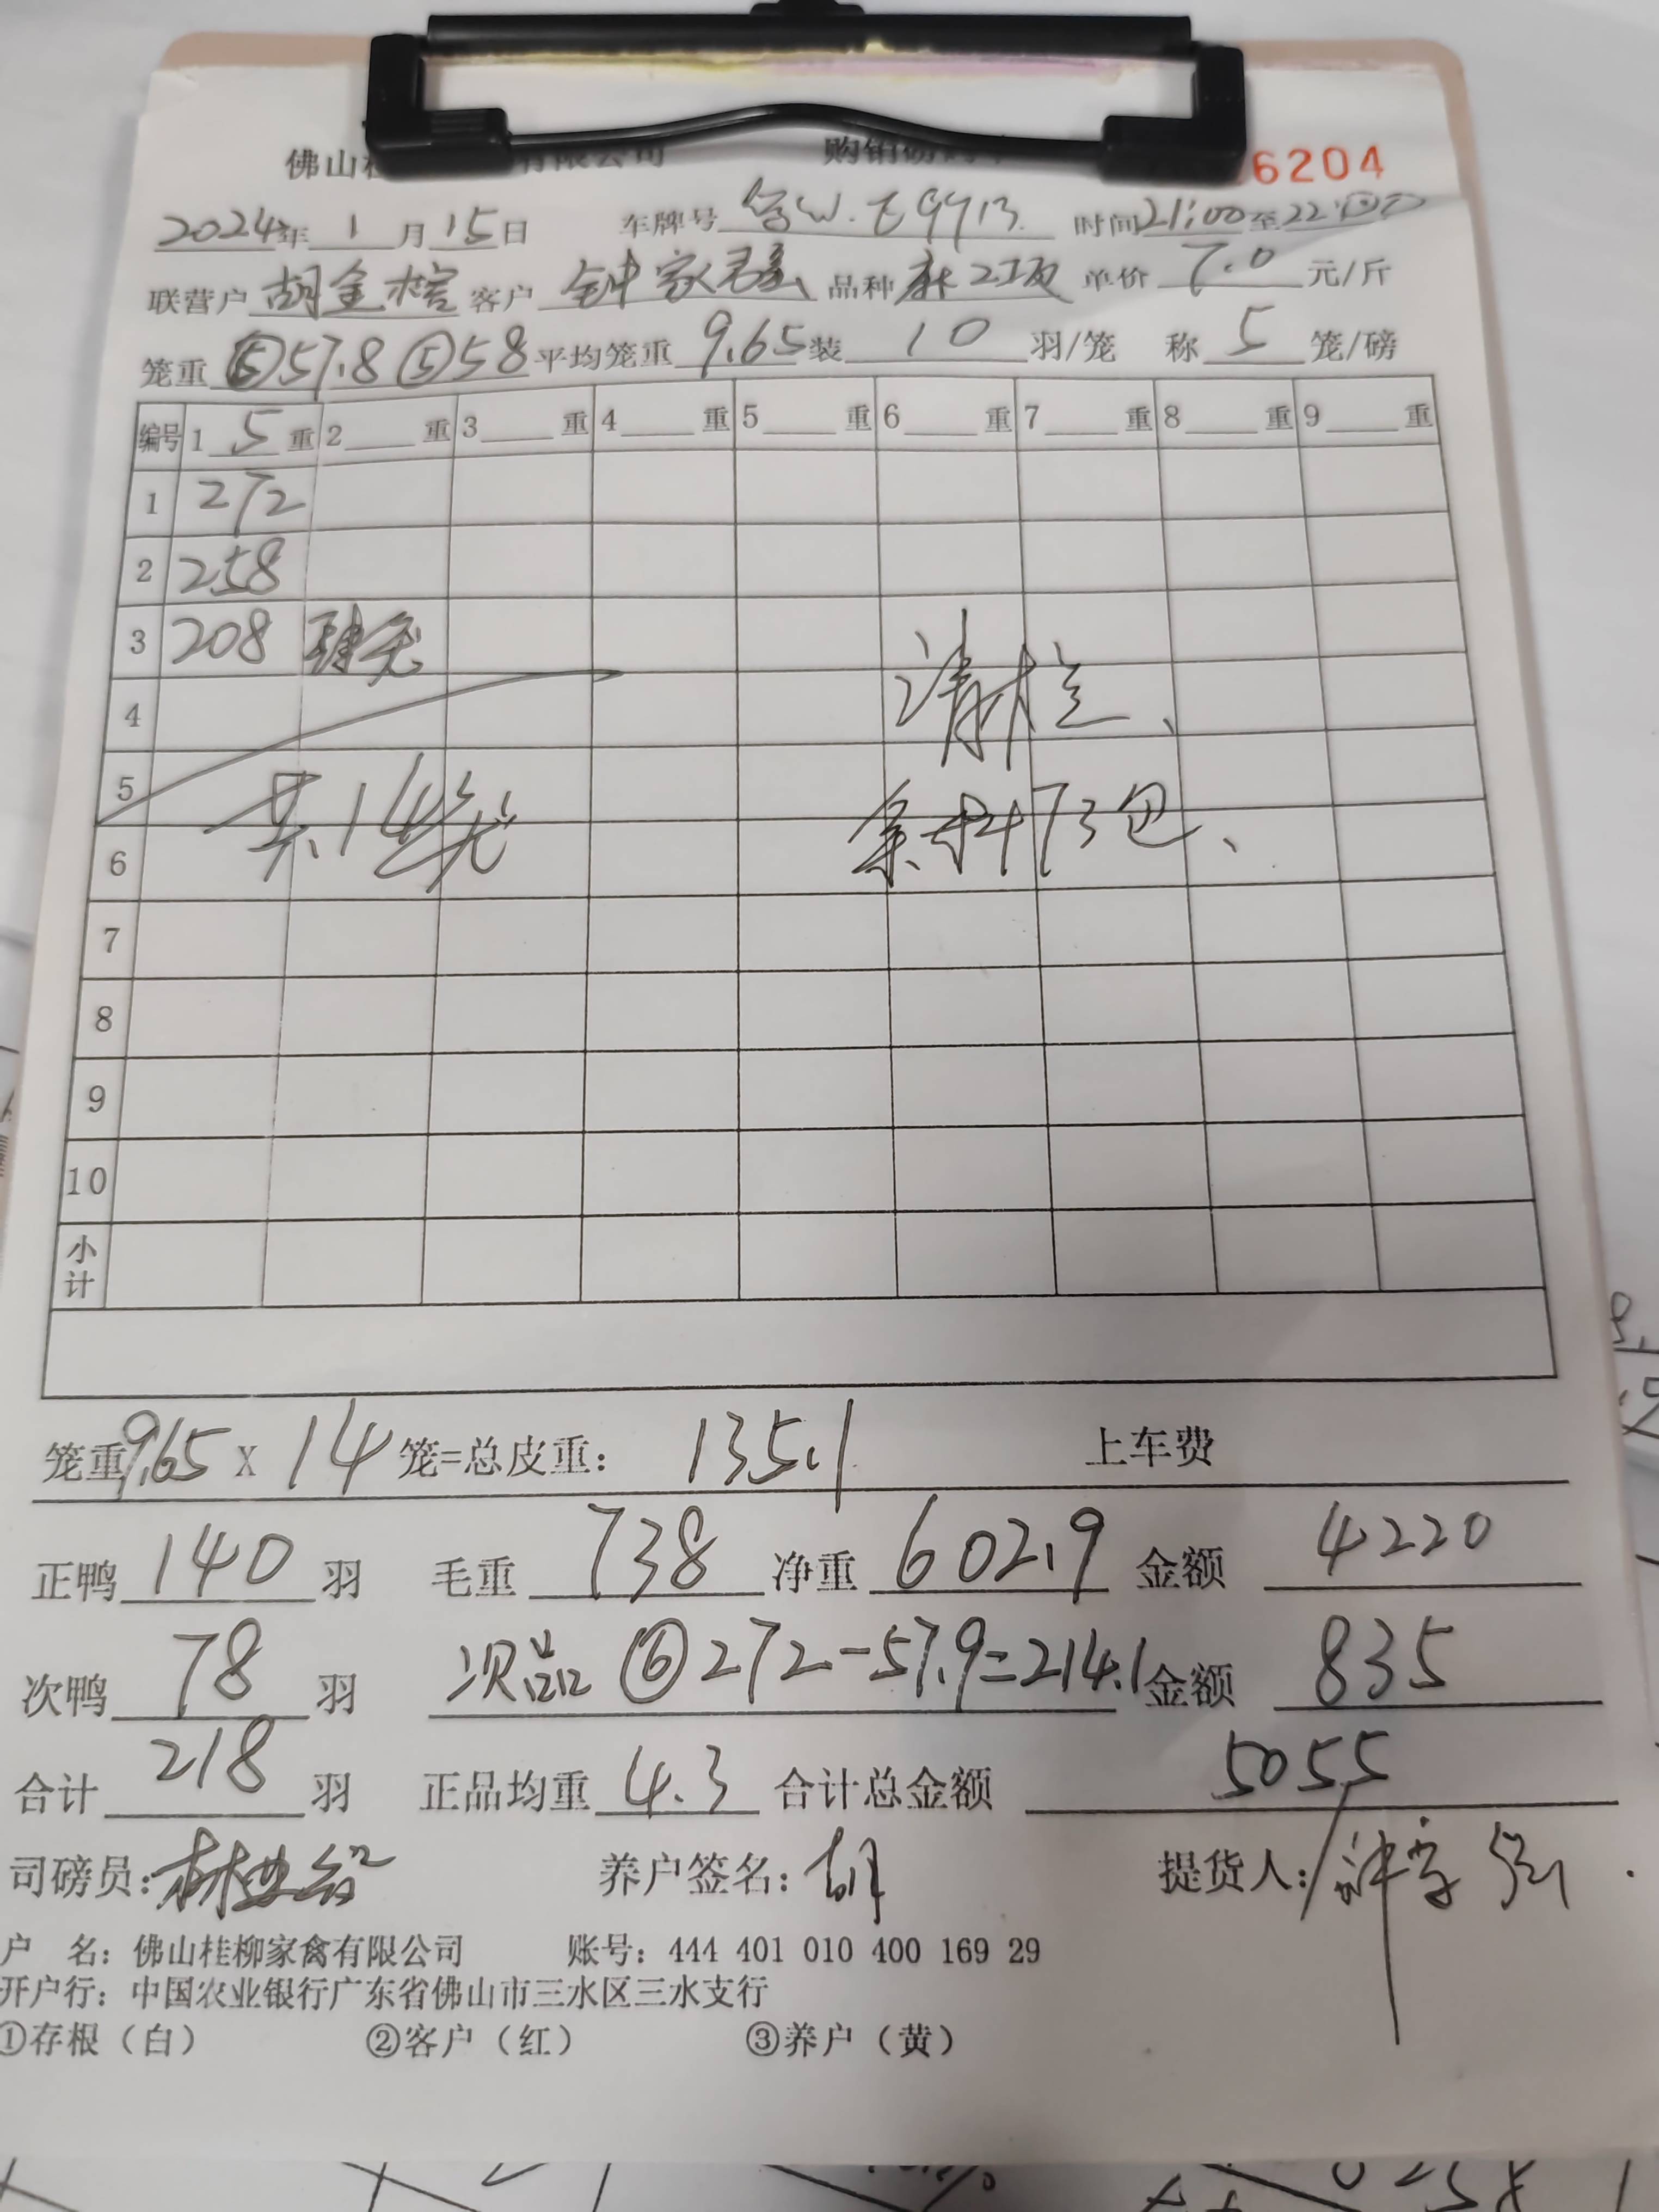 佛山桂 有限公司 购销磅码单 6204
2024年1月15日 车牌号 粤W.E9913 时间21:00至22:00
联营户 胡金榕 客户 钟家 品种 单价 7.0 元/斤
笼重 ⑥57.8 ⑥58 平均笼重 9.65 装 10 羽/笼 称 5 笼/磅
编号 1 5 重 2 重 3 重 4 重 5 重 6 重 7 重 8 重 9 重
1 272
2 258
3 208 肆笼
4 清栏、
5
共14笼 余料73包、
6
7
8
9
10
小计
笼重9.65 X 14 笼=总皮重: 135.1 上车费
正鸭 140 羽 毛重 738 净重 602.9 金额 4220
次鸭 78 羽 次品 ⑥272-57.9=214.1 金额 835
合计 218 羽 正品均重 4.3 合计总金额 5055
司磅员: 养户签名: 胡 提货人:
户 名: 佛山桂柳家禽有限公司 账号: 444 401 010 400 169 29
开户行: 中国农业银行广东省佛山市三水区三水支行
①存根（白） ②客户（红） ③养户（黄）